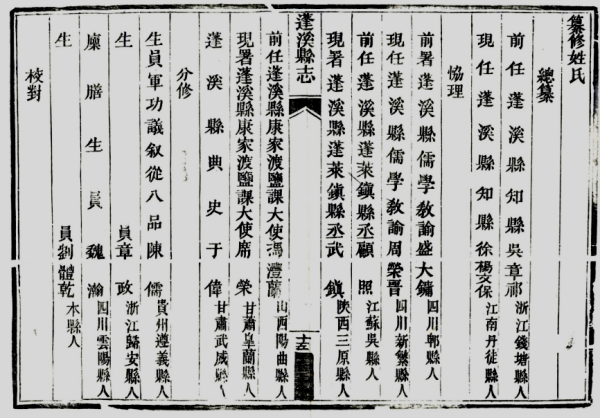 纂修姓氏
總纂
前任蓬溪縣知縣吳章祁 浙江錢塘縣人
現任蓬溪縣知縣徐楊文保 江南丹徒縣人
協理
前署蓬溪縣儒學教諭盛大鏞 四川郫縣人
現任蓬溪縣儒學教諭周榮晋 四川新繁縣人
前任蓬溪縣蓬萊鎮縣丞顧照 江蘇吳縣人
現署蓬溪縣蓬萊鎮縣丞武鎮 陝西三原縣人
蓬溪縣志
前任蓬溪縣康家渡鹽課大使馮澧蘭 山西陽曲縣人
現署蓬溪縣康家渡鹽課大使席榮 甘肅皋蘭縣人
蓬溪縣典史于偉 甘肅武威縣人
分修
生員軍功議叙從八品陳儒 貴州遵義縣人
生員章政 浙江歸安縣人
廩膳生員魏瀚 四川雲陽縣人
生員劉體乾 本縣人
校對